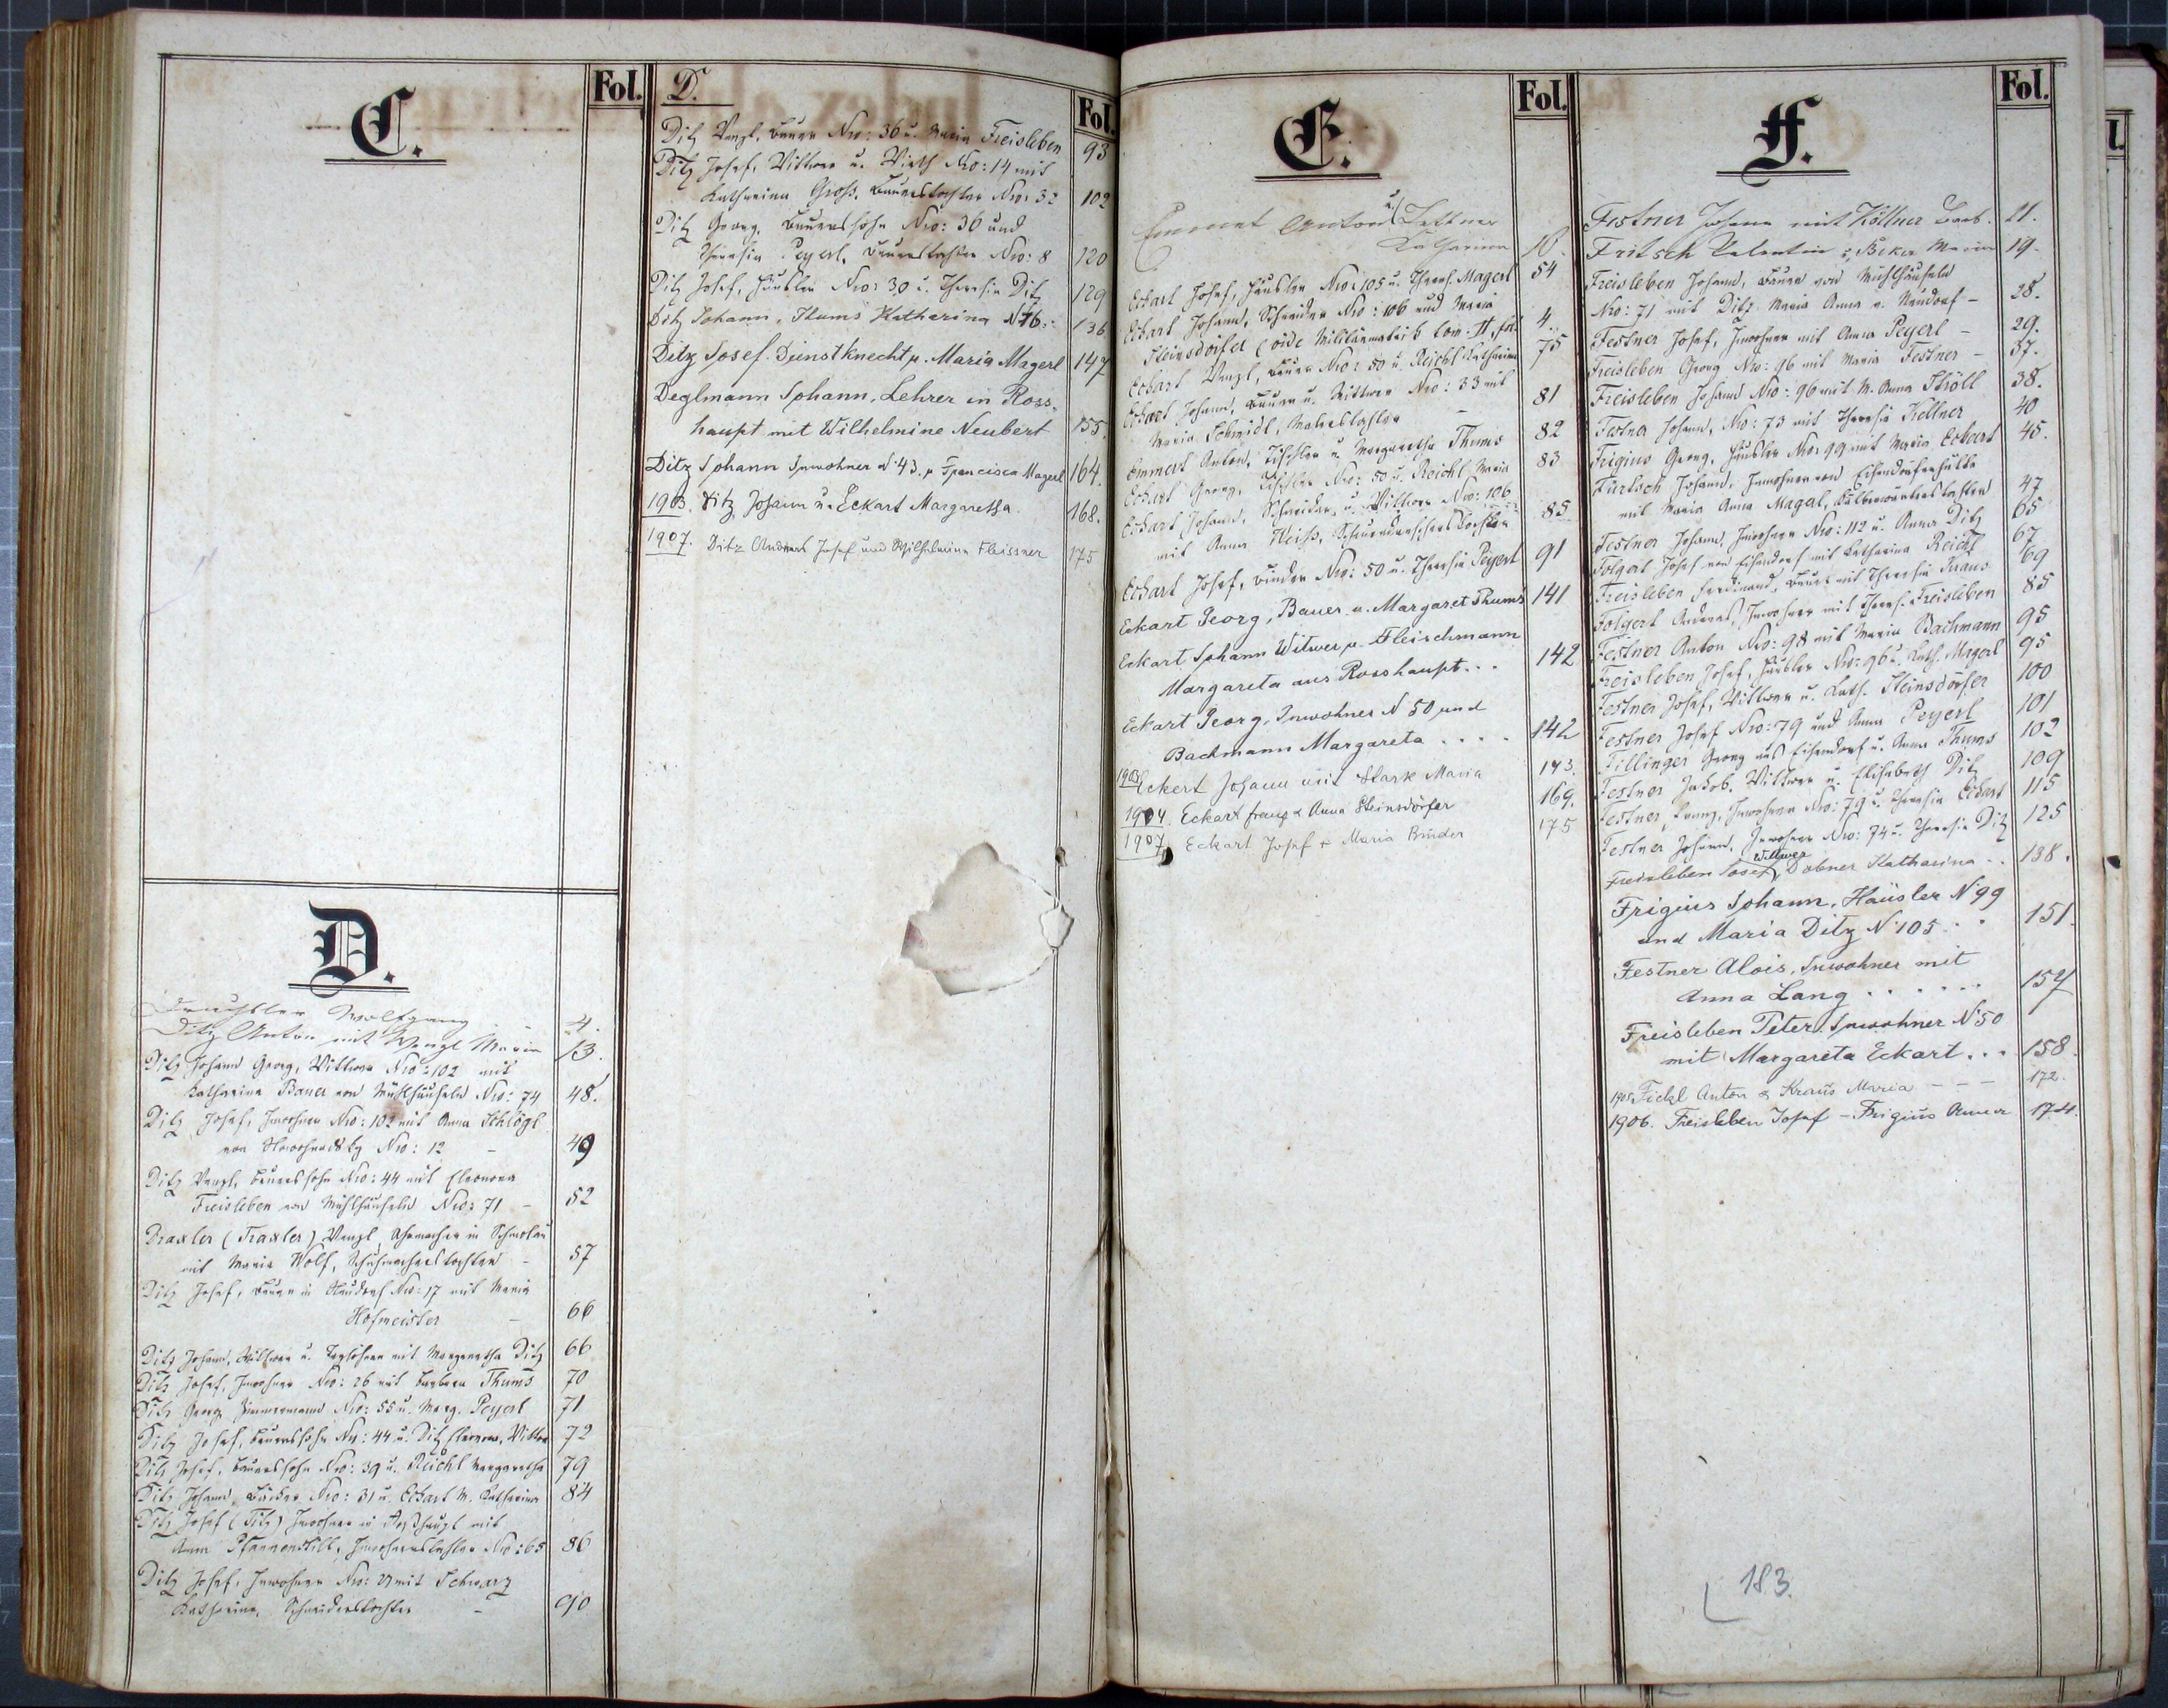 C.
Fol.
D.
Drechsler Wolfgang 4.
Ditz Anton mit Wenzl Maria 13.
Ditz Johann Georg, Wittwer Nro: 102 mit
Katharina Bauer von Mühlhäuseln Nro: 74 48.
Ditz Josef, Inwohner Nro: 102 mit Anna Schlögl
von Nro: 12 - 49
Ditz Wenzl, Bauerssohn Nro: 44 mit Eleonora
Freisleben von Mühlhäuseln Nro: 71 - 52
Draxler (Traxler) Wenzl, in
mit Maria Wolf, Schuhmacherstochter - 57
Ditz Josef, Bauer in Neudorf Nro: 17 mit Maria
Hofmeister - 66
Ditz Johann, Wittwer u. Taglöhner mit Margaretha Ditz 66
Ditz Josef, Inwohner Nro: 26 mit Barbara Thums 70
Ditz Georg Zimmermann Nro: 55 u. Marg. Peyerl 71
Ditz Josef, Bauerssohn Nro: 44 u. Ditz Eleonora, Wittwe 72
Ditz Josef, Bauerssohn Nro: 39 u. Reichl Margaretha 79
Ditz Johann, Bäcker Nro: 31 u. Eckart M. Katharina 84
Ditz Josef (Titz) Inwohner in Roßhaupt mit
Anna Pfannenstill, Inwohnerstochter Nro: 65 86
Ditz Josef, Inwohner Nro: mit Schwarz
Katharina, Schneiderstochter - 90
D.
Fol.
Ditz Wenzl, Bauer Nro: 36 u. Maria Freisleben 93
Ditz Josef, Wittwer u. Wirth Nro: 14 mit
Katharina Groß, Bauerstochter Nro: 32 102
Ditz Georg, Bauerssohn Nro: 36 und
Theresia Peyerl, Bauerstochter Nro: 8 120
Ditz Josef, Häusler Nro: 30 u. Theresia Ditz 129
Ditz Johann, Thums Katharina N 76: 136
Ditz Josef. Dienstknecht u. Maria Magerl 147
Deglmann Johann, Lehrer in Ross-
haupt mit Wilhelmine Neubert 155.
Ditz Johann Inwohner N 43. u Francisca Magerl 164.
1903. Ditz Johann u. Eckart Margaretha. 168.
1907. Ditz Andreas Josef und Wilhelmine Fleissner 175
E.
Fol.
Emmert Anton u. Zettner
Katharina 10.
Eckart Josef, Häusler Nro: 105 u. Theres. Magerl 54
Eckart Johann, Schneider Nro: 106 und Maria
Steinsdörfer (vide Militärmatrik Tom. II, fol. 4.
Eckart Wenzl, Bauer Nro: 50 u. Reichl Katharina 75
Eckart Johann, Bauer u. Wittwer Nro: 33 mit
Maria Schmidl, - 81
Emmert Anton, Tischler u. Margaretha Thums 82
Eckart Georg, Tischler Nro: 50 u. Reichl Maria 83
Eckart Johann, Schneider u. Wittwer Nro: 106
mit Anna Heiß, 85
Eckart Josef, Binder Nro: 50 u. Theresia Peyerl 91
Eckart Georg, Bauer u. Margaret Thums 141
Eckart Johann Witwer u. Fleischmann
Margareta aus Rosshaupt... 142
Eckart Georg, Inwohner N 50 und
Bachmann Margareta .... 142
1903 Eckert Johann mit Stark Maria 143.
1904. Eckart Franz & Anna Steinsdörfer 169.
1907. Eckart Josef & Maria Binder 175
F.
Fol.
Festner Johann mit Köllner Barb. 11.
Fritsch Valentin & Beker Maria 19.
Freisleben Johann, Bauer von Mühlhäuseln
Nro: 71 mit Ditz Maria Anna v. Neudorf - 28.
Festner Josef, Inwohner mit Anna Peyerl - 29.
Freisleben Georg Nro: 96 mit Maria Festner - 37.
Freisleben Johann Nro: 96 mit M. Anna Ströll 38.
Festner Johann, Nro: 73 mit Theresia Kellner 40
Frigius Georg, Häusler Nro: 99 mit Maria Eckart 45.
Fürtsch Johann, Inwohner von Eisendorferhütte
mit Maria Anna Magerl, 47
Festner Johann, Inwohner Nro: 112 u. Anna Ditz 65
Folgert Josef von Eisendorf mit Katharina Reichl 67
Freisleben Ferdinand, Bauer mit Theresia Kraus 69
Folgert Andreas, Inwohner mit Theres. Freisleben 85
Festner Anton Nro: 98 mit Maria Bachmann 95
Freisleben Josef, Häusler Nro: 96 u. Kath. Magerl 95
Festner Josef, Wittwer u. Kath. Steinsdörfer 100
Festner Josef Nro: 79 und Anna Peyerl 101
Fillinger Georg aus Eisendorf u. Anna Thums 102
Festner Jakob, Wittwer u. Elisabeth Ditz 109
Festner, Franz, Inwohner Nro: 79 u. Theresia Eckart 115
Festner Johann, Inwohner Nro: 74 u. Theresia Ditz 125
Freisleben Josef Wittwer, Dobner Katharina .. 138.
Frigius Johann, Häusler N 99
und Maria Ditz N 105 . . 151.
Festner Alois, Inwohner mit
Anna Lang ...... 157
Freisleben Peter, Inwohner N 50
mit Margareta Eckart ... 158.
1905 Fickl Anton & Kraus Maria - - - 172.
1906. Freisleben Josef - Frigius Anna 174.
183.